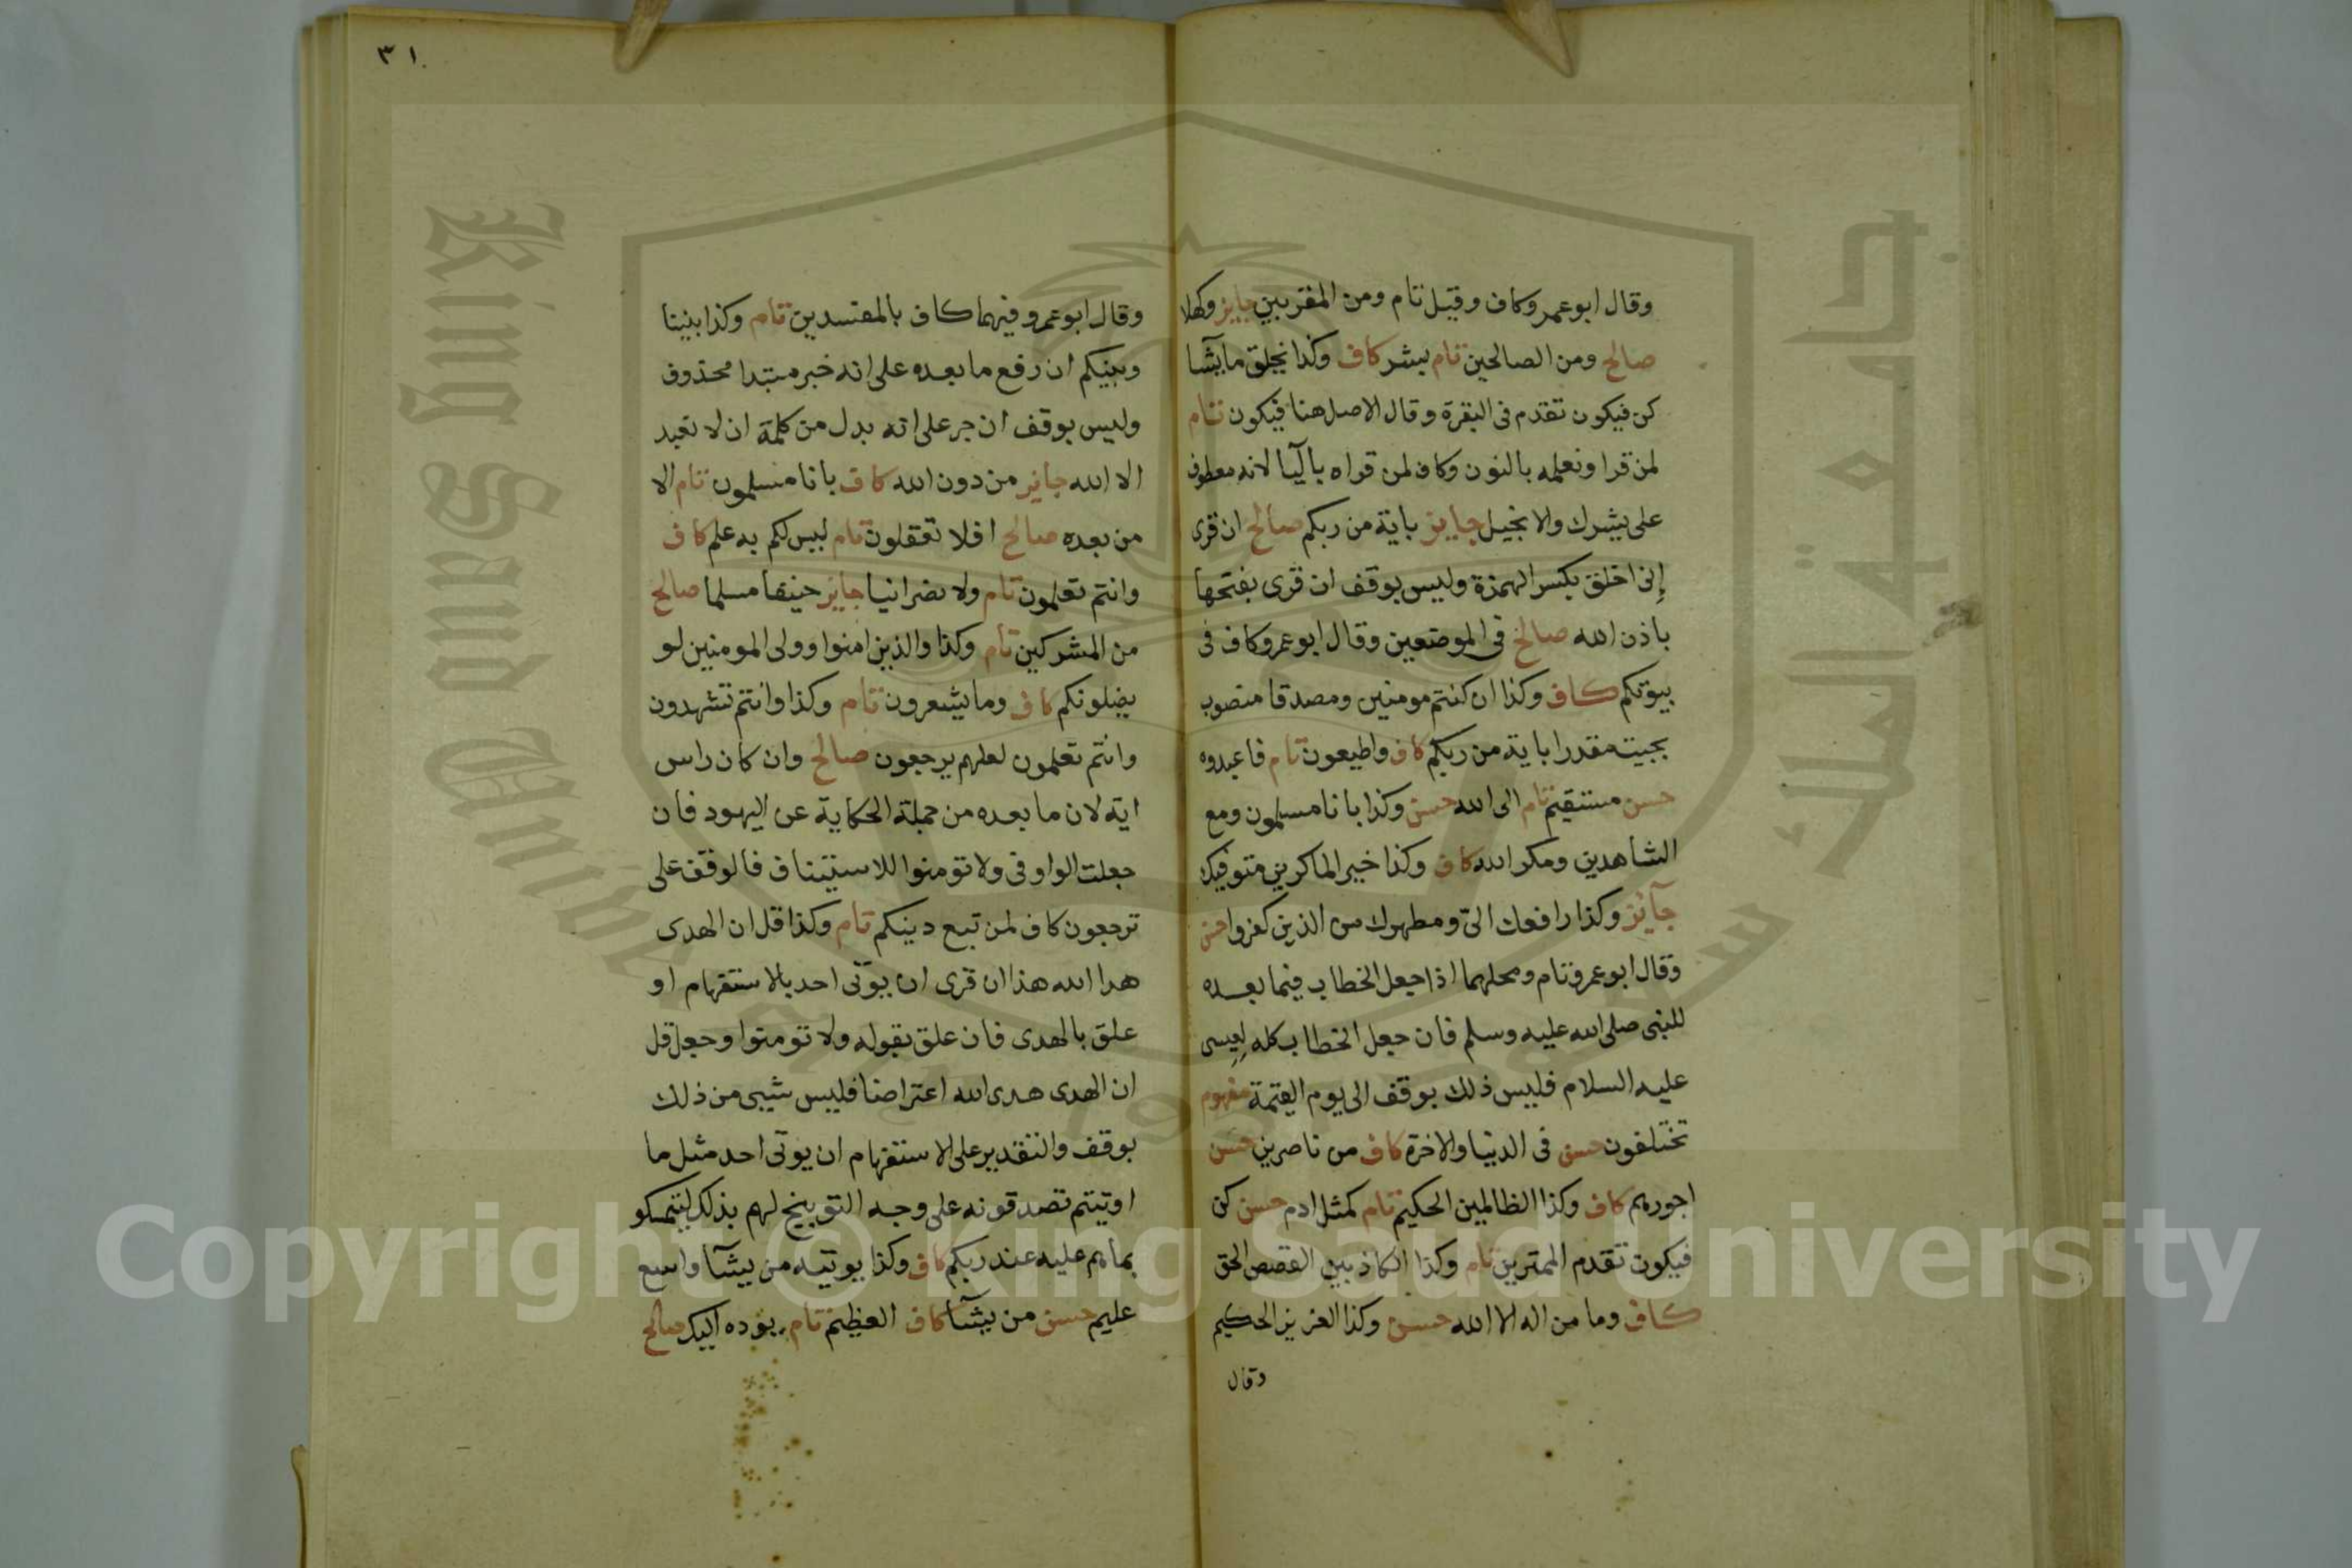 وقال ابوعمرو كاف وقيل تام ومن المقربين جايز وكهلا
صالح ومن الصالحين تام بيشر كاف وكذا يخلق ما يشآ
كن فيكون تقدم فى البقرة وقال الاصل هنا فيكون تام
لمن قرا ونعلمه بالنون وكاف لمن قراه باليآ لانه معطوف
على يبشرك والانجيل جايز باية من ربكم صالح ان قرى
إنى اخلق بكسر الهمزة وليس بوقف ان قرى بفتحها
باذن الله صالح فى الموضعين وقال ابوعمرو كاف فى
بيوتكم كاف وكذا ان كنتم مومنين ومصدقا منصوب
بجيت مقدرا باية من ربكم كاف واطيعون تام فاعبدوه
حسن مستقيم تام الى الله حسن وكذا بانا مسلمون ومع
الشاهدين ومكر الله كاف وكذا خير الماكرين متوفيك
جآئز وكذا رافعك الىّ ومطهرك من الذين كفروا حسن
وقال ابوعمرو تام ومحلهما اذا جعل الخطاب فيما بعده
للنبى صلى الله عليه وسلم فان جعل الخطاب كله لعيسى
عليه السلام فليس ذلك بوقف الى يوم القيمة مفهوم
تختلفون حسن فى الدنيا والاخرة كاف من ناصرين حسن
اجورهم كاف وكذا الظالمين الحكيم تام كمثل ادم حسن كن
فيكون تقدم الممترين تام وكذا الكاذبين القصص الحق
كاف وما من اله الا الله حسن وكذا العزيز الحكيم
وقال
٣١
وقال ابوعمرو فيهما كاف بالمفسدين تام وكذا بيننا
وبينكم ان رفع ما بعده على انه خبر مبتدا محذوف
وليس بوقف ان جر على انه بدل من كلمة ان لا نعبد
الا الله جايز من دون الله كاف بانا مسلمون تام الا
من بعده صالح افلا تعقلون تام ليس لكم به علم كاف
وانتم تعلمون تام ولا نصرانيا جايز حنيفا مسلما صالح
من المشركين تام وكذا والذين امنوا وولى المومنين لو
يضلونكم كاف وما يشعرون تام وكذا وانتم تشهدون
وانتم تعلمون لعلهم يرجعون صالح وان كان راس
اية لان ما بعده من جملة الحكاية عن اليهود فان
جعلت الواو فى ولا تومنوا للاستيناف فالوقف على
ترجعون كاف لمن تبع دينكم تام وكذا قل ان الهدى
هدا الله هذا ان قرى ان يوتى احد بالاستفهام او
علق بالهدى فان علق بقوله ولا تومنوا وجعل قل
ان الهدى هدى الله اعتراضا فليس شيى من ذلك
بوقف والتقدير على الاستفهام ان يوتى احد مثل ما
اوتيتم تصدقونه على وجه التوبيخ لهم بذلك ليتمسكو
بما هم عليه عند ربكم كاف وكذا يوتيه من يشآ واسع
عليم حسن من يشآ كاف العظيم تام يوده اليك صالح
Copyright © King Saud University
King Saud University
جامعة الملك سعود